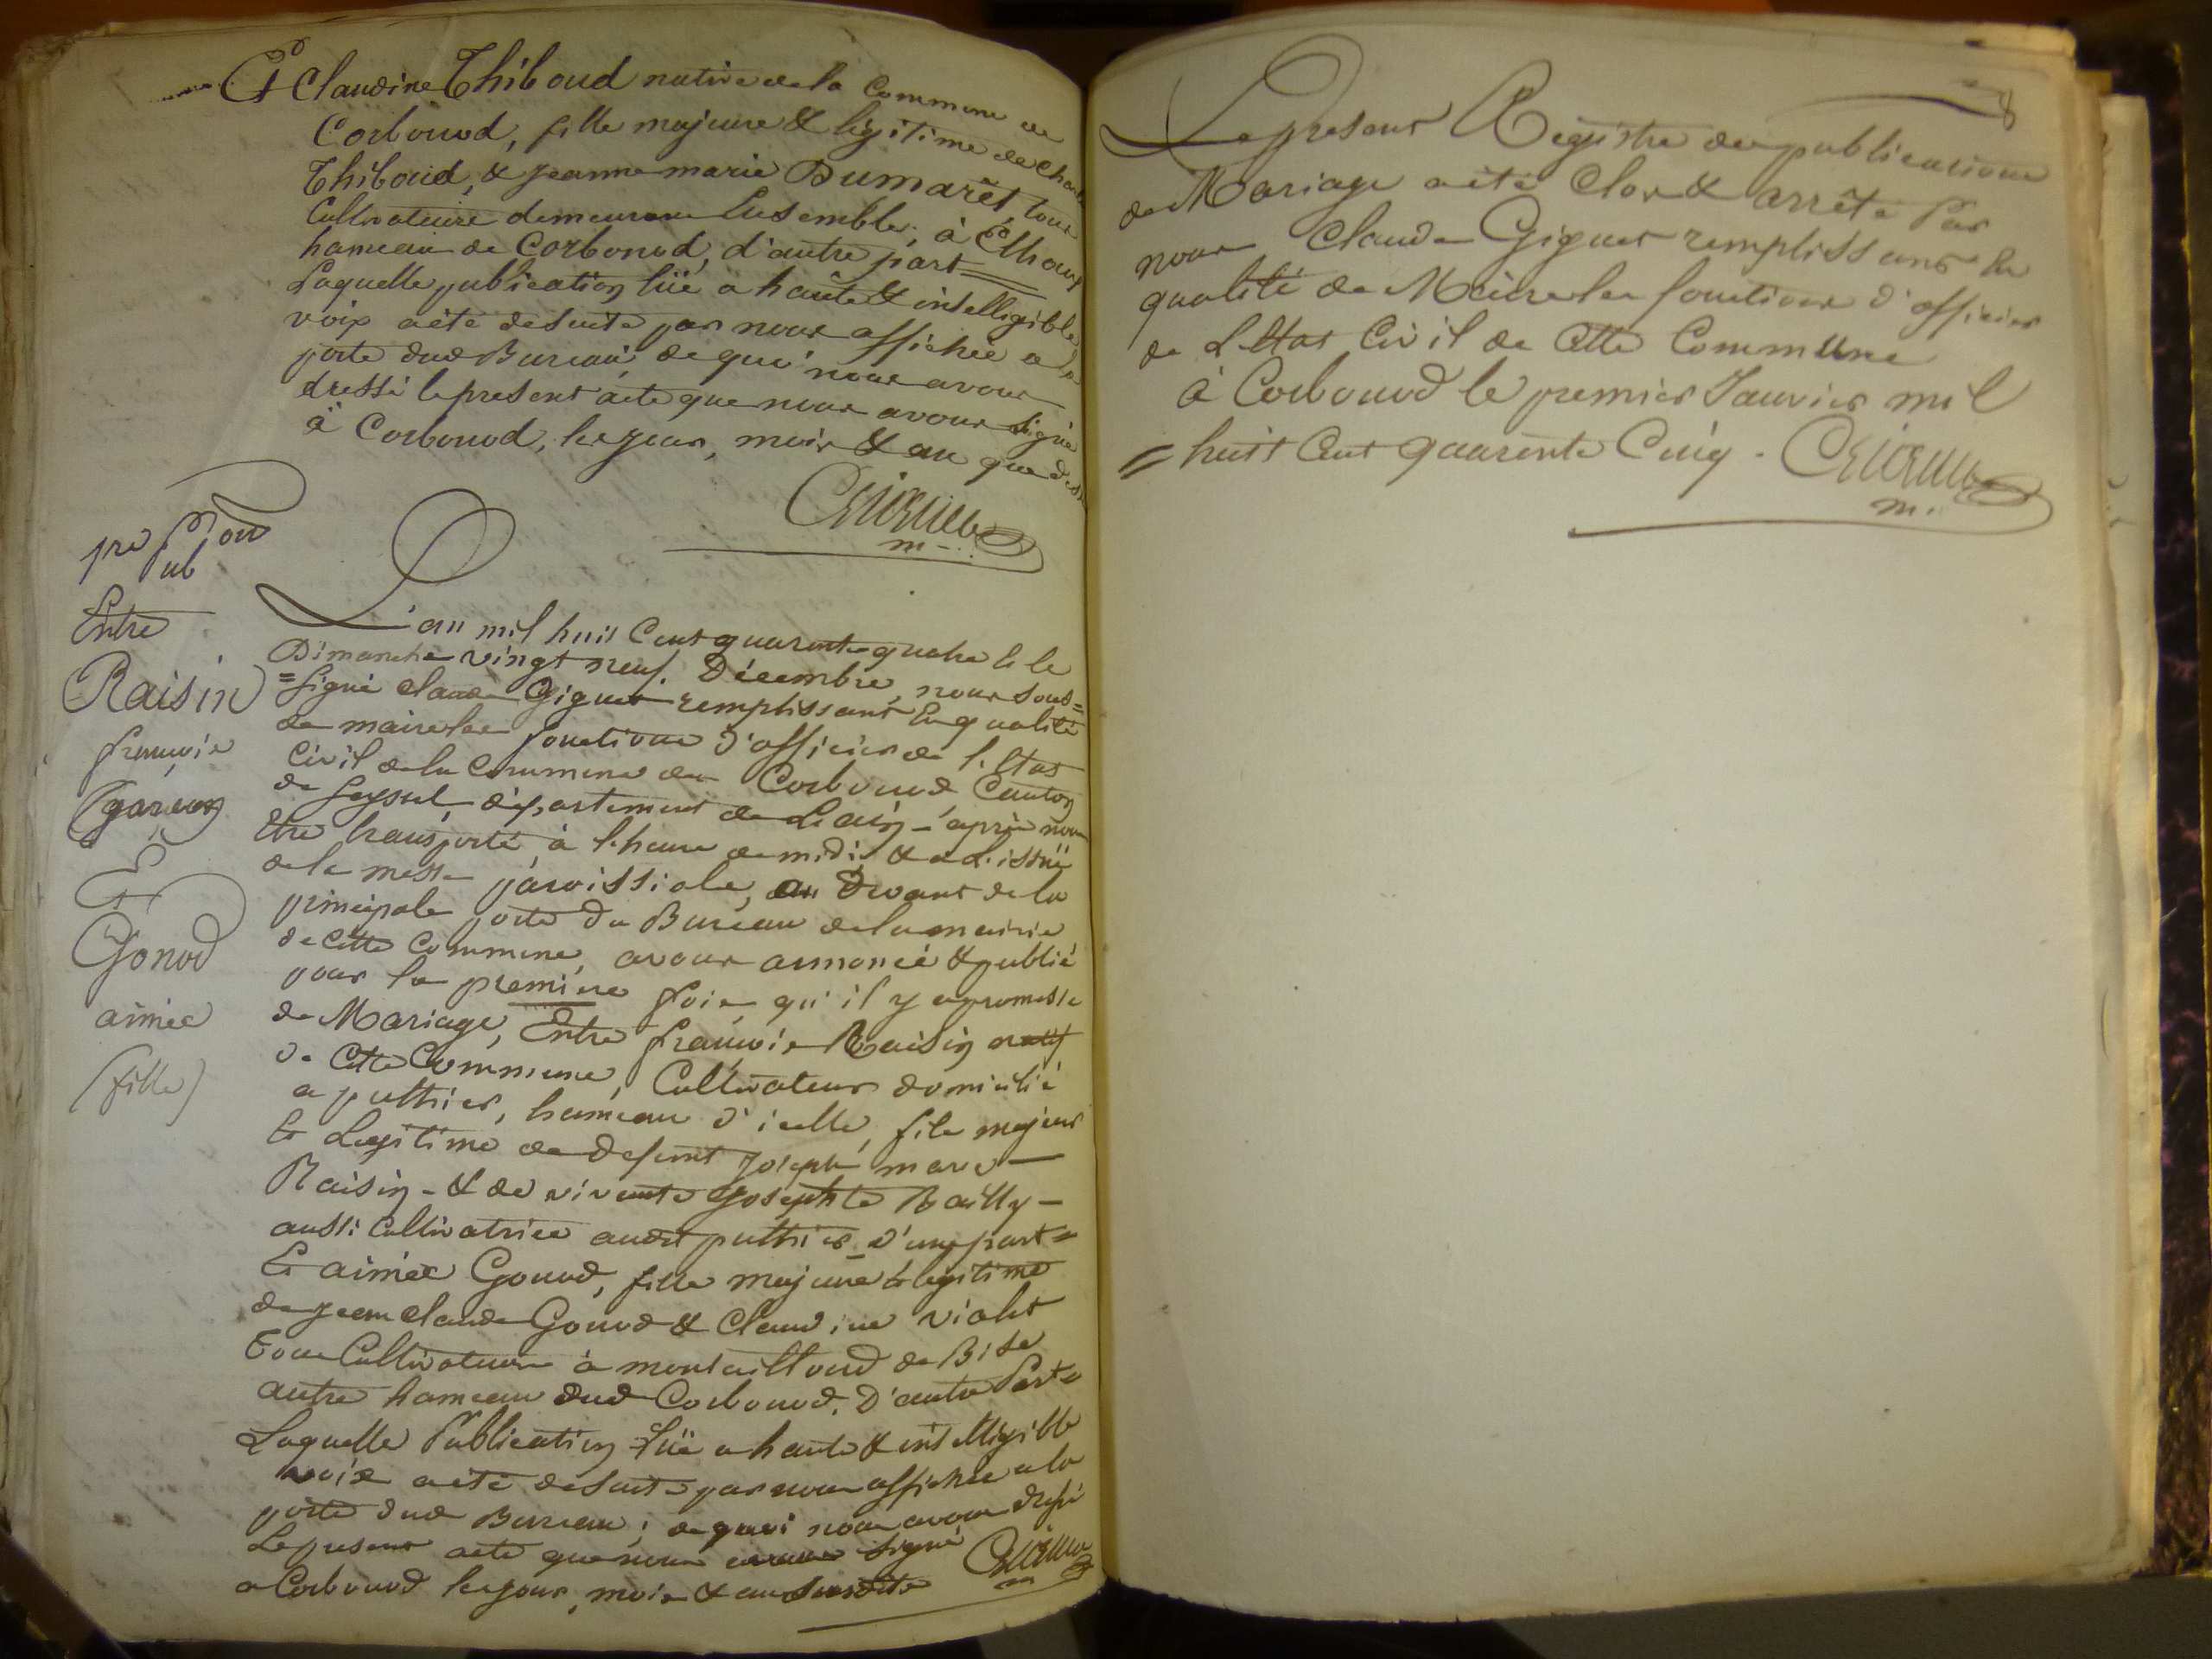 Et Claudine Thiboud native de la Commune de
Corbonod, fille majeure & légitime de
Thiboud, & jeanne marie Dumarêt, tous
Cultivateurs demeurant Ensemble, à
hameau de Corbonod, d'autre part =
Laquelle publication lüe à haute & intelligible
voix a été desuite par nous affichée a la
porte dud Bureau, de quoi nous avons
dressé le present acte que nous avons signé
à Corbonod, les jour, mois & an que
m
pre Pub on
Entre
Raisin
françois
(garçon)
Et
Gonod
aimée
(fille)
L'an mil huit Cent quarante quatre & le
Dimanche vingt neuf Décembre, nous sous=
=signé Claude Giguet remplissant En qualité
de maire les fonctions d'officier de l'Etat
Civil de la Commune de Corbonod Canton
de Seyssel, département de L'ain - après nous
Etre transporté, à l'heure de midi & a L'issüe
de la messe paroissiale, au Devant de la
principale porte du Bureau de la mairie
de cette Commune, avons annoncé & publié
pour la premiere fois, qu'il y a promesse
de Mariage, Entre françois Raisin natif
de Cette Commune, Cultivateur domicilié
a puthier, hameau d'icelle, fils majeur
& Legitime de defunt joseph marie
Raisin - & de vivante josephte Bailly -
aussi Cultivatrice audit puthier - d'une part =
Et aimée Gonod, fille majeure & légitime
de jean Claude Gonod & Claudine violet
Tous Cultivateurs à montailloud de Bise
autre hameau dud Corbonod, D'autre Part =
Laquelle Publication lüe a haute & intelligible
voix a été desuite par nous affichée a la
porte dud Bureau; de quoi nous avons dressé
Le present acte que nous avons signé
a Corbonod les jour, mois & an susdits
m
Le present Registre des publications
de Mariage a été Clos & arrêté Par
nous Claude Giguet remplissant En
qualité de Maire les fonctions d'officier
de L'Etat Civil de Cette Commune
à Corbonod le premier Janvier mil
= huit Cent quarante Cinq.
m.